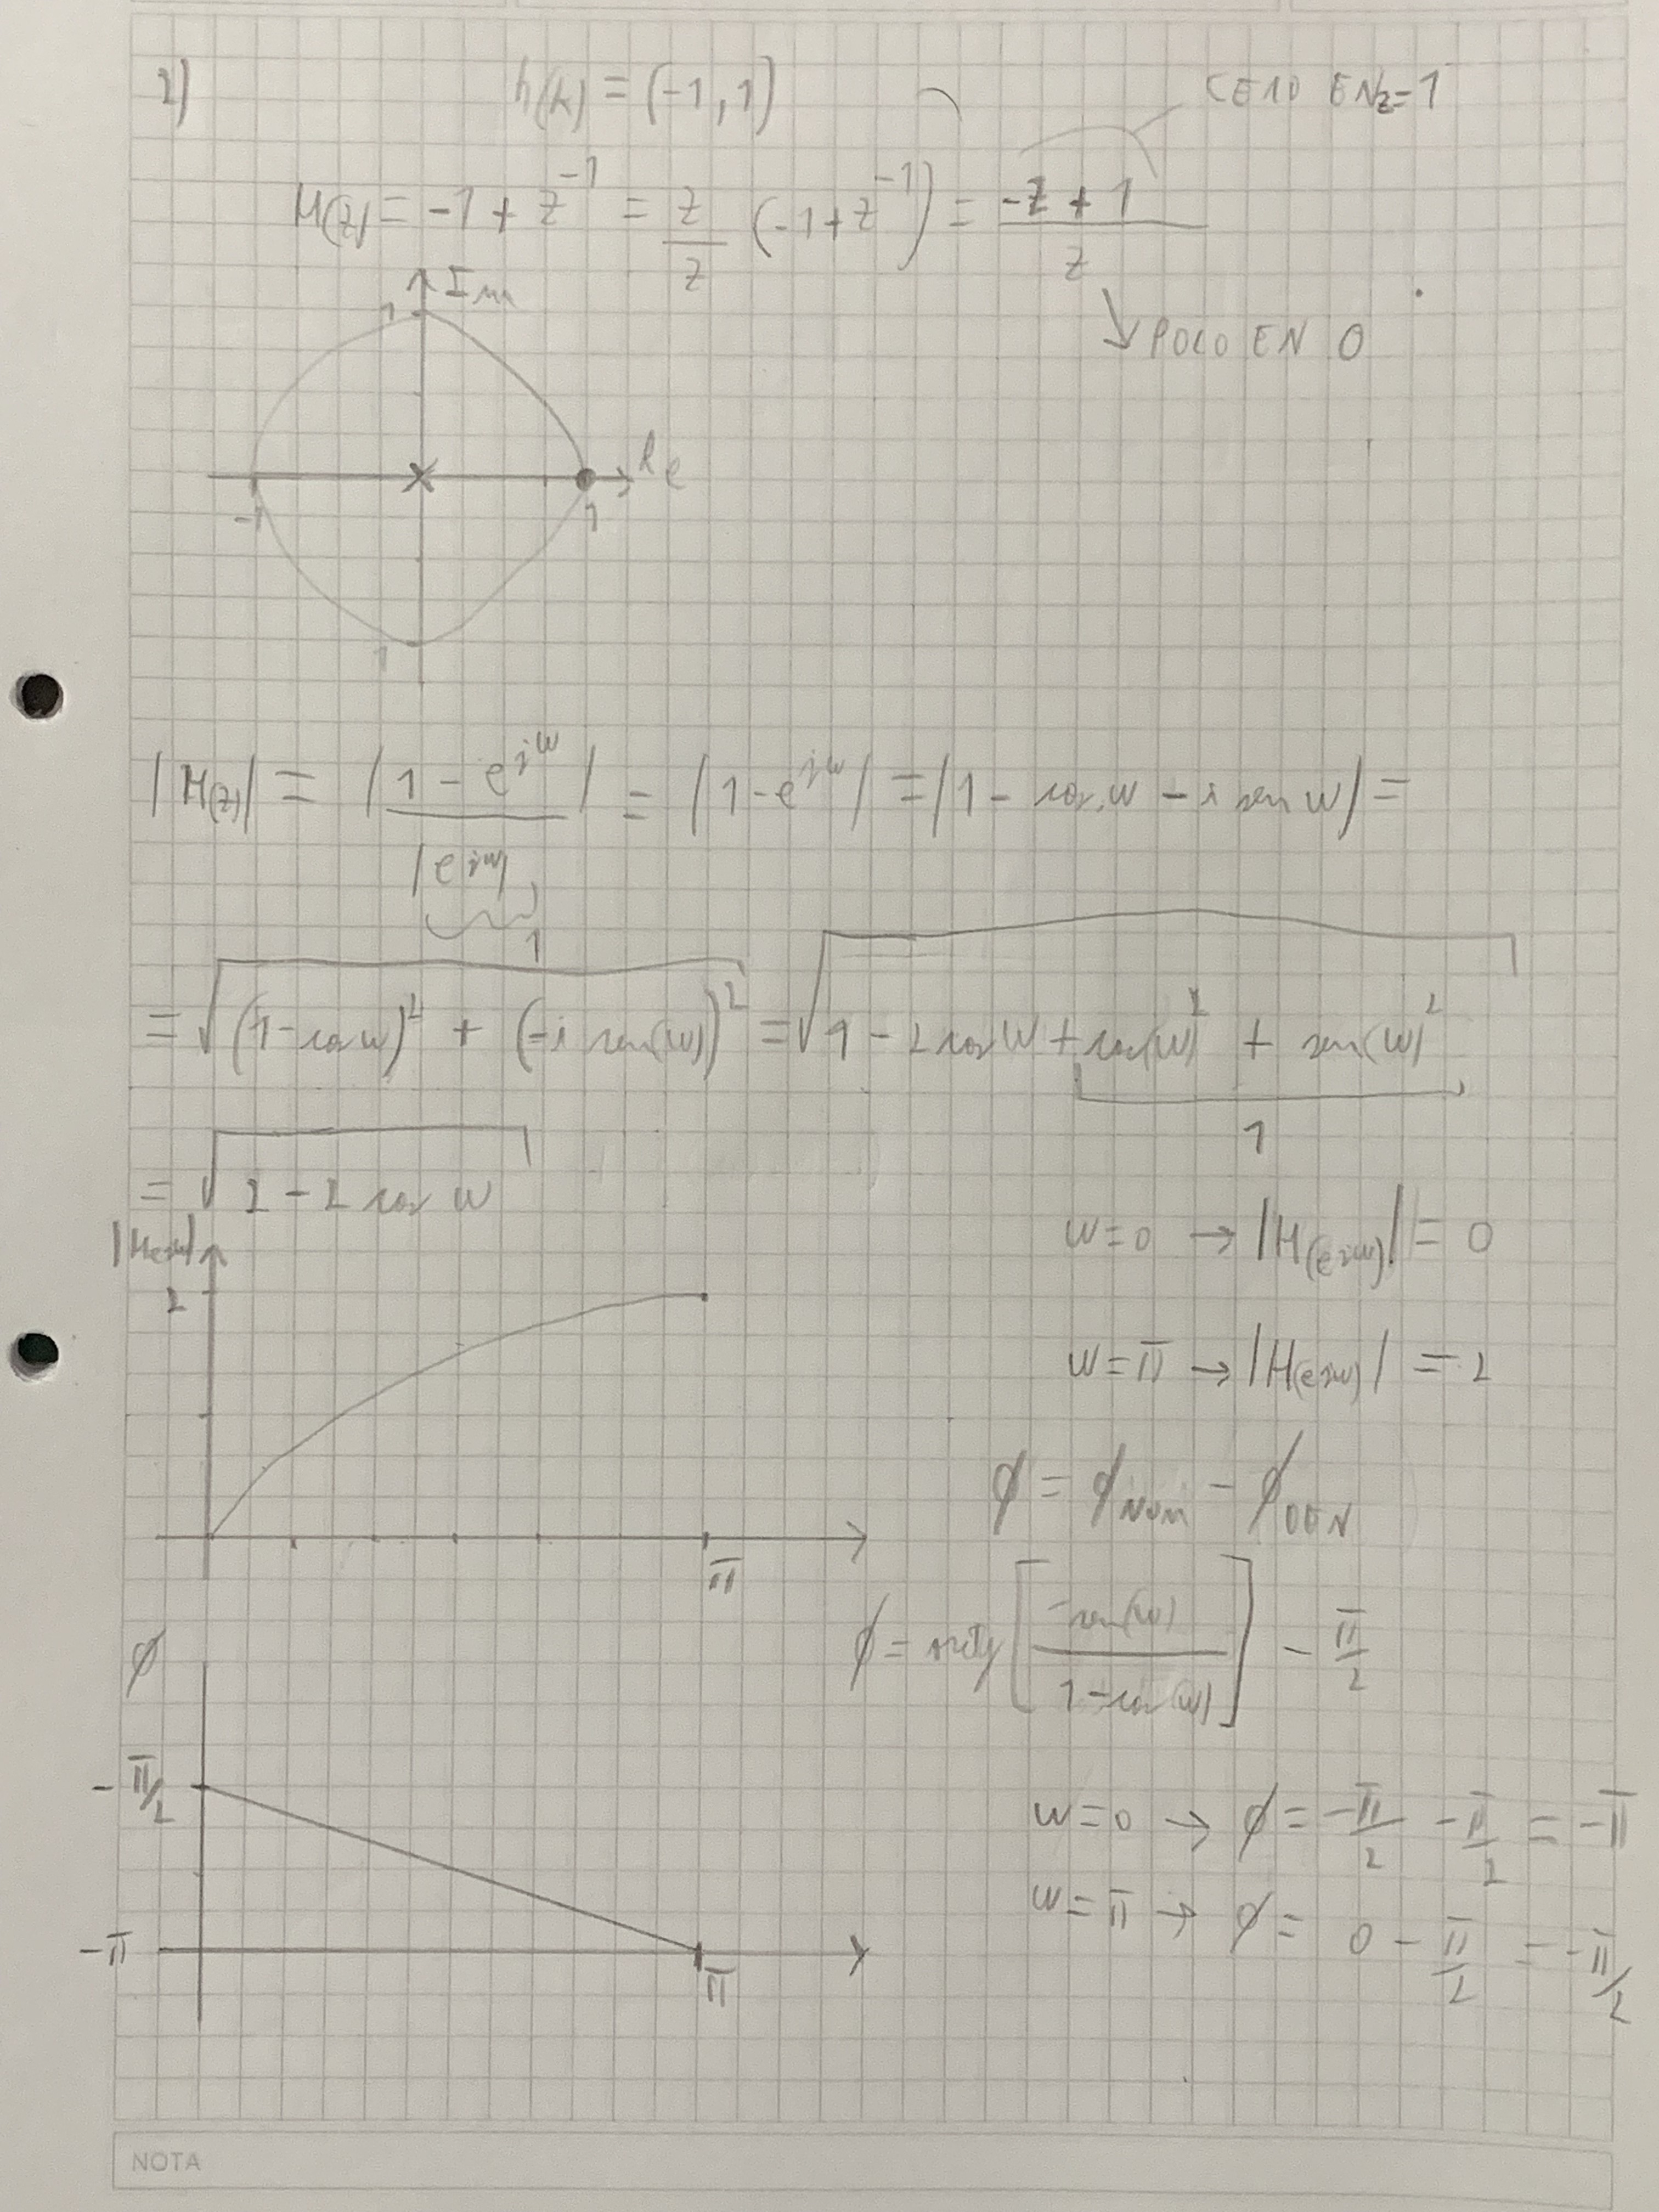 2) h(k) = (-1, 1) CERO EN z=1
H(z) = -1 + z^-1 = z/z (-1 + z^-1) = (-z + 1)/z
POLO EN 0
Im
1
Re
-1 1
1
|H(z)| = |1 - e^jw| / |e^jw| = |1 - e^jw| = |1 - cos w - i sen w| =
1
= √((1 - cos w)^2 + (-i sen(w))^2) = √(1 - 2 cos w + cos(w)^2 + sen(w)^2)
1
= √(2 - 2 cos w)
|H(e^jw)|
w=0 → |H(e^jw)| = 0
2
w=π → |H(e^jw)| = 2
ϕ = ϕNUM - ϕDEN
π
ϕ = arctg [-sen(w) / (1 - cos(w))] - π/2
ϕ
-π/2
w=0 → ϕ = -π/2 - π/2 = -π
w=π → ϕ = 0 - π/2 = -π/2
-π
π
NOTA